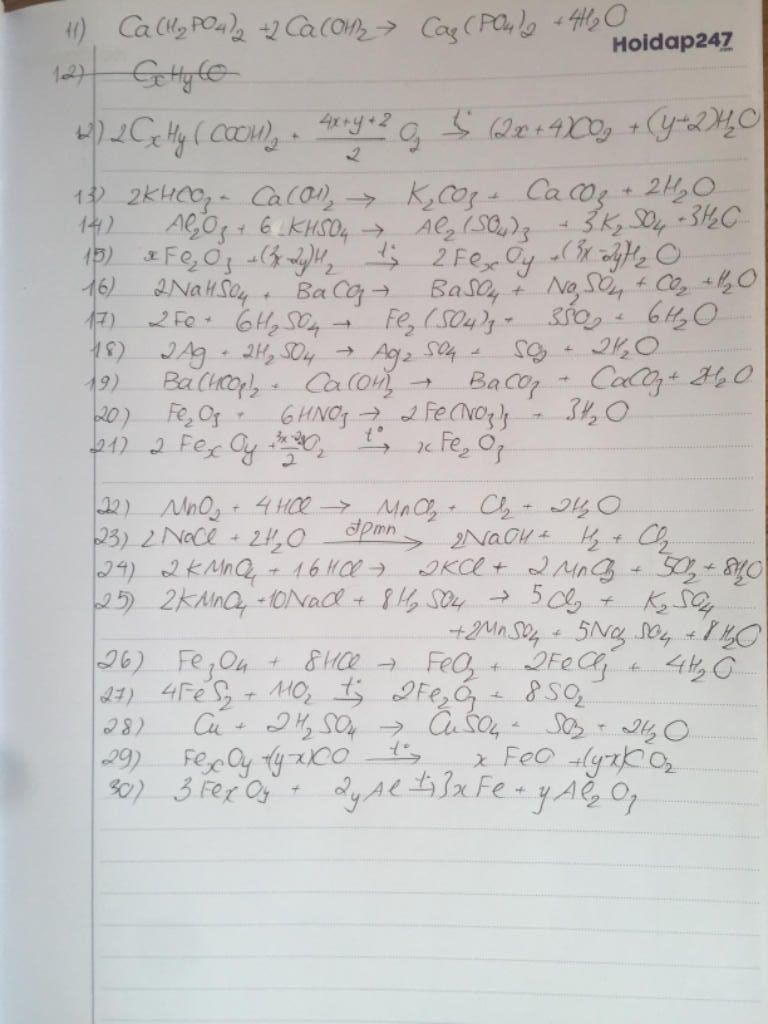 11) Ca(H₂PO₄)₂ + 2Ca(OH)₂ → Ca₃(PO₄)₂ + 4H₂O
Hoidap247
.com
12) CₓHy(O
12) 2CₓHy(COOH)₂ + (4x+y+2)/2 O₂ –t°→ (2x+4)CO₂ + (y+2)H₂O
13) 2KHCO₃ + Ca(OH)₂ → K₂CO₃ + CaCO₃ + 2H₂O
14) Al₂O₃ + 6 KHSO₄ → Al₂(SO₄)₃ + 3K₂SO₄ + 3H₂O
15) xFe₂O₃ + (3x-2y)H₂ –t°→ 2FeₓOy + (3x-2y)H₂O
16) 2NaHSO₄ + BaCO₃ → BaSO₄ + Na₂SO₄ + CO₂ + H₂O
17) 2Fe + 6H₂SO₄ → Fe₂(SO₄)₃ + 3SO₂ + 6H₂O
18) 2Ag + 2H₂SO₄ → Ag₂SO₄ + SO₂ + 2H₂O
19) Ba(HCO₃)₂ + Ca(OH)₂ → BaCO₃ + CaCO₃ + 2H₂O
20) Fe₂O₃ + 6HNO₃ → 2Fe(NO₃)₃ + 3H₂O
21) 2FeₓOy + (3x-2y)/2 O₂ –t°→ xFe₂O₃
22) MnO₂ + 4HCl → MnCl₂ + Cl₂ + 2H₂O
23) 2NaCl + 2H₂O –đpmn→ 2NaOH + H₂ + Cl₂
24) 2KMnO₄ + 16HCl → 2KCl + 2MnCl₂ + 5Cl₂ + 8H₂O
25) 2KMnO₄ + 10NaCl + 8H₂SO₄ → 5Cl₂ + K₂SO₄
+ 2MnSO₄ + 5Na₂SO₄ + 8H₂O
26) Fe₃O₄ + 8HCl → FeCl₂ + 2FeCl₃ + 4H₂O
27) 4FeS₂ + 11O₂ –t°→ 2Fe₂O₃ + 8SO₂
28) Cu + 2H₂SO₄ → CuSO₄ + SO₂ + 2H₂O
29) FeₓOy + (y-x)CO –t°→ xFeO + (y-x)CO₂
30) 3FeₓOy + 2yAl –t°→ 3xFe + yAl₂O₃